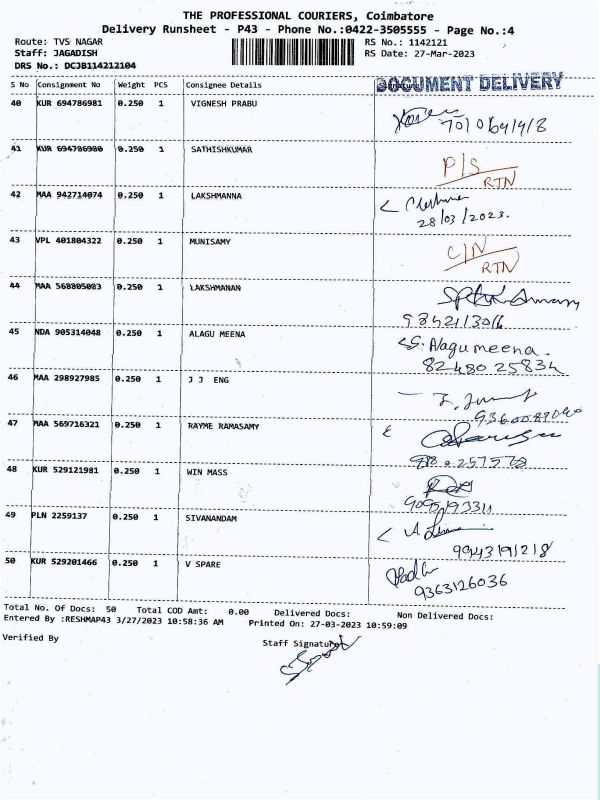 THE PROFESSIONAL COURIERS, Coimbatore
Delivery Runsheet - P43 - Phone No.:0422-3505555 - Page No.:4
Route: TVS NAGAR RS No.: 1142121
Staff: JAGADISH RS Date: 27-Mar-2023
DRS No.: DCJB114212104
S No Consignment No Weight PCS Consignee Details DOCUMENT DELIVERY
40 KUR 694786981 0.250 1 VIGNESH PRABU
41 KUR 694786980 0.250 1 SATHISHKUMAR P/S
RTN
42 MAA 942714074 0.250 1 LAKSHMANNA
28/03/2023.
43 VPL 401804322 0.250 1 MUNISAMY C/N
RTN
44 MAA 568805083 0.250 1 LAKSHMANAN
9842113016
45 NDA 905314048 0.250 1 ALAGU MEENA S. Alagumeena.
82480 25834
46 MAA 298927985 0.250 1 J J ENG
47 MAA 569716321 0.250 1 RAYME RAMASAMY
48 KUR 529121981 0.250 1 WIN MASS
49 PLN 2259137 0.250 1 SIVANANDAM
9943191218
50 KUR 529201466 0.250 1 V SPARE
9363126036
Total No. Of Docs: 50 Total COD Amt: 0.00 Delivered Docs: Non Delivered Docs:
Entered By :RESHMAP43 3/27/2023 10:58:36 AM Printed On: 27-03-2023 10:59:09
Verified By Staff Signature